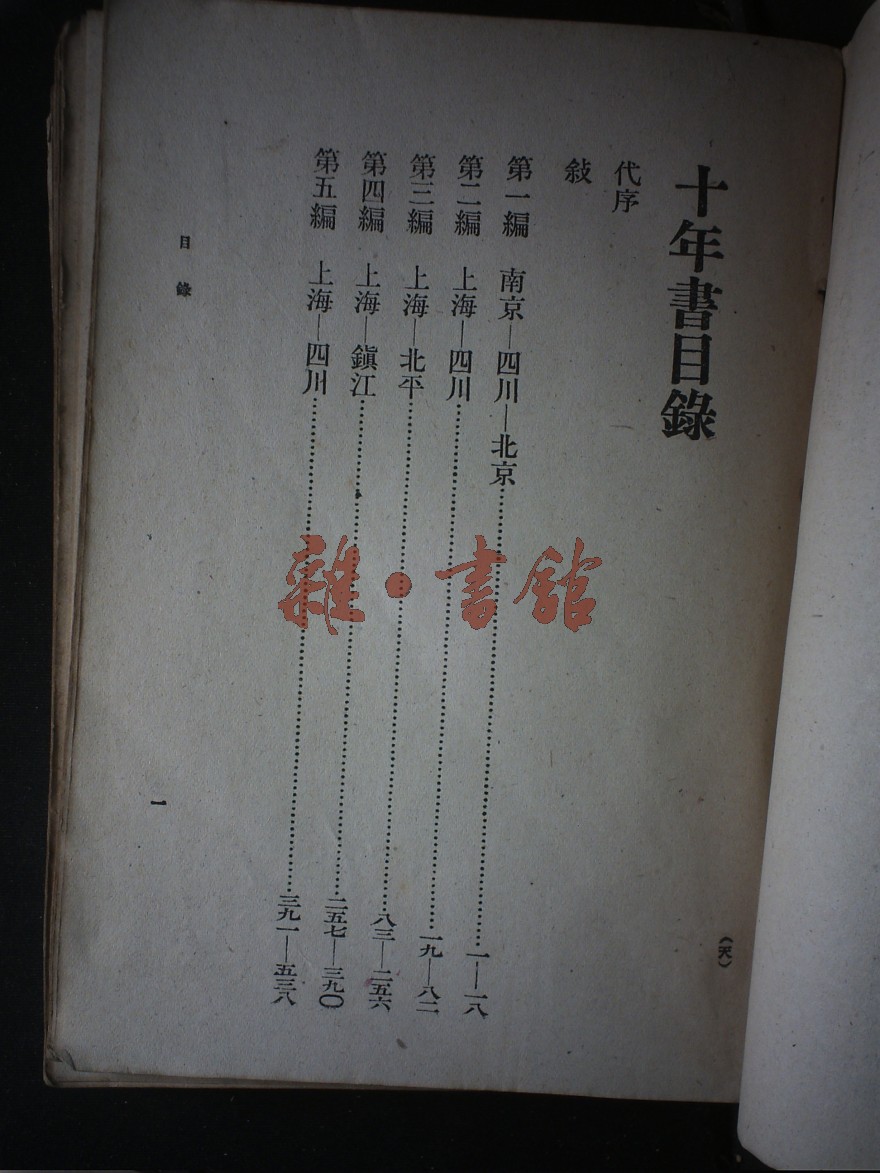 十年書目錄
(天)
代序
敍
第一編 南京—四川—北京……一—一八
第二編 上海—四川……一九—八二
第三編 上海—北平……八三—二五六
第四編 上海—鎭江……二五七—三九〇
第五編 上海—四川……三九一—五三八
目錄
一
雜·書館